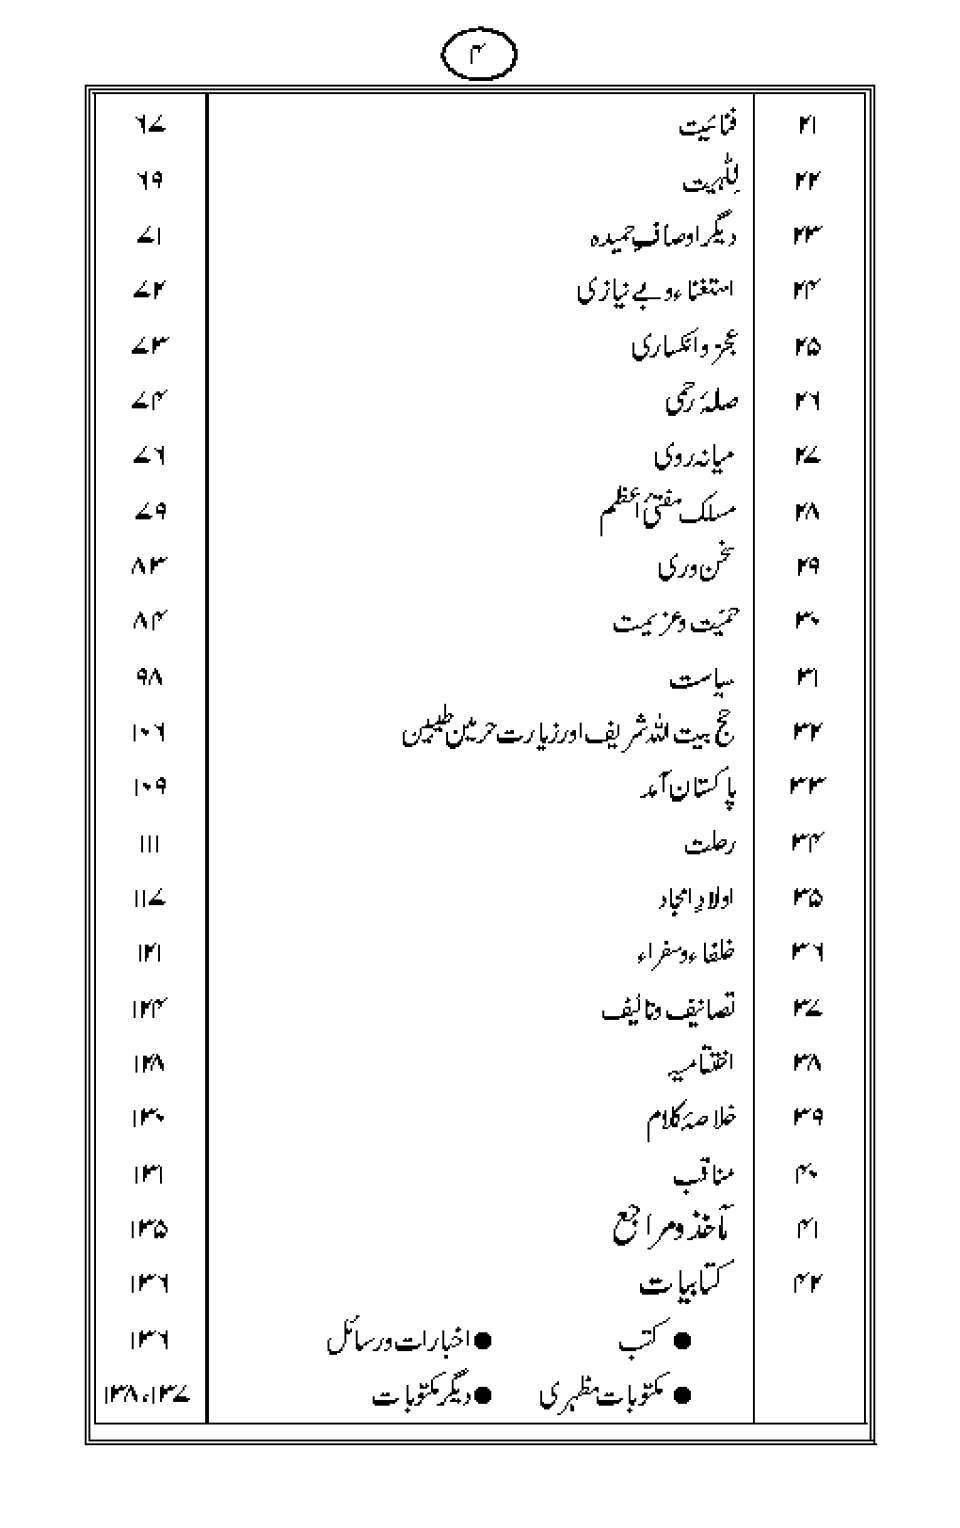 ۴
۲۱ فنائیت ۶۷
۲۲ لِلّٰہیت ۶۹
۲۳ دیگر اوصافِ حمیدہ ۷۱
۲۴ استغناء و بے نیازی ۷۲
۲۵ عجز و انکساری ۷۳
۲۶ صلۂ رحمی ۷۴
۲۷ میانہ روی ۷۶
۲۸ مسلک مفتیٔ اعظم ۷۹
۲۹ سخن وری ۸۳
۳۰ حمیّت و عزیمت ۸۴
۳۱ سیاست ۹۸
۳۲ حج بیت اللہ شریف اور زیارت حرمین طیبین ۱۰۶
۳۳ پاکستان آمد ۱۰۹
۳۴ رحلت ۱۱۱
۳۵ اولادِ امجاد ۱۱۷
۳۶ خلفاء و سفراء ۱۲۱
۳۷ تصانیف و تالیف ۱۲۴
۳۸ اختتامیہ ۱۲۸
۳۹ خلاصۂ کلام ۱۳۰
۴۰ مناقب ۱۳۱
۴۱ مآخذ و مراجع ۱۳۵
۴۲ کتابیات ۱۳۶
● کتب ● اخبارات و رسائل ۱۳۶
● مکتوبات مظہری ● دیگر مکتوبات ۱۳۷، ۱۳۸